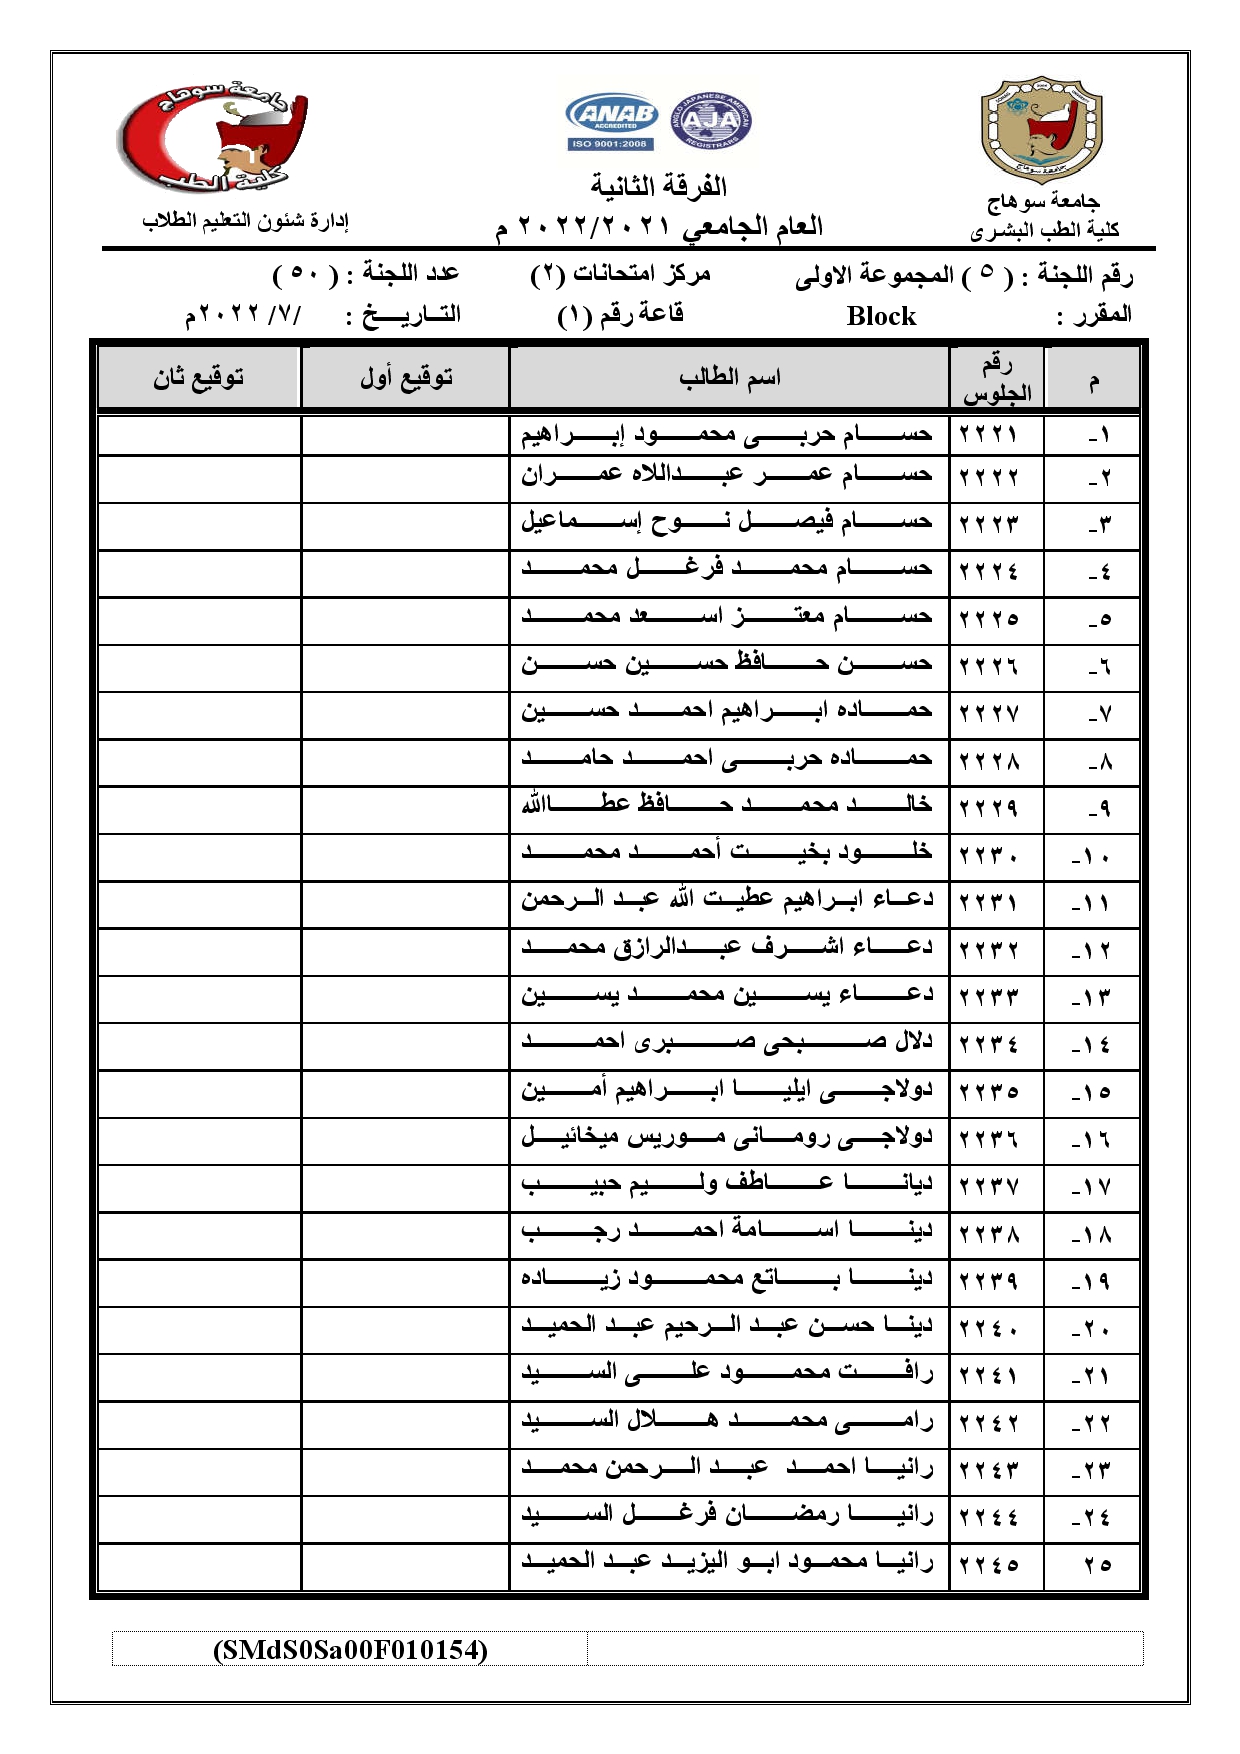 جامعة سوهاج
كلية الطب
ANAB
ACCREDITED
ISO 9001:2008
ANGLO JAPANESE AMERICAN
AJA
REGISTRARS
جامعة سوهاج
جامعة سوهاج
كلية الطب البشرى
الفرقة الثانية
العام الجامعي ٢٠٢٢/٢٠٢١ م
إدارة شئون التعليم الطلاب
رقم اللجنة : ( ٥ ) المجموعة الاولى مركز امتحانات (٢) عدد اللجنة : ( ٥٠ )
المقرر : Block قاعة رقم (١) التـــاريــــخ : /٧/ ٢٠٢٢م
م رقم الجلوس اسم الطالب توقيع أول توقيع ثان
١- ٢٢٢١ حسام حربى محمود إبراهيم
٢- ٢٢٢٢ حسام عمر عبداللاه عمران
٣- ٢٢٢٣ حسام فيصل نوح إسماعيل
٤- ٢٢٢٤ حسام محمد فرغل محمد
٥- ٢٢٢٥ حسام معتز اسعد محمد
٦- ٢٢٢٦ حسن حافظ حسين حسن
٧- ٢٢٢٧ حماده ابراهيم احمد حسين
٨- ٢٢٢٨ حماده حربى احمد حامد
٩- ٢٢٢٩ خالد محمد حافظ عطاالله
١٠- ٢٢٣٠ خلود بخيت أحمد محمد
١١- ٢٢٣١ دعاء ابراهيم عطيت الله عبد الرحمن
١٢- ٢٢٣٢ دعاء اشرف عبدالرازق محمد
١٣- ٢٢٣٣ دعاء يسين محمد يسين
١٤- ٢٢٣٤ دلال صبحى صبرى احمد
١٥- ٢٢٣٥ دولاجى ايليا ابراهيم أمين
١٦- ٢٢٣٦ دولاجى رومانى موريس ميخائيل
١٧- ٢٢٣٧ ديانا عاطف وليم حبيب
١٨- ٢٢٣٨ دينا اسامة احمد رجب
١٩- ٢٢٣٩ دينا باتع محمود زياده
٢٠- ٢٢٤٠ دينا حسن عبد الرحيم عبد الحميد
٢١- ٢٢٤١ رافت محمود على السيد
٢٢- ٢٢٤٢ رامى محمد هلال السيد
٢٣- ٢٢٤٣ رانيا احمد عبد الرحمن محمد
٢٤- ٢٢٤٤ رانيا رمضان فرغل السيد
٢٥ ٢٢٤٥ رانيا محمود ابو اليزيد عبد الحميد
(SMdS0Sa00F010154)